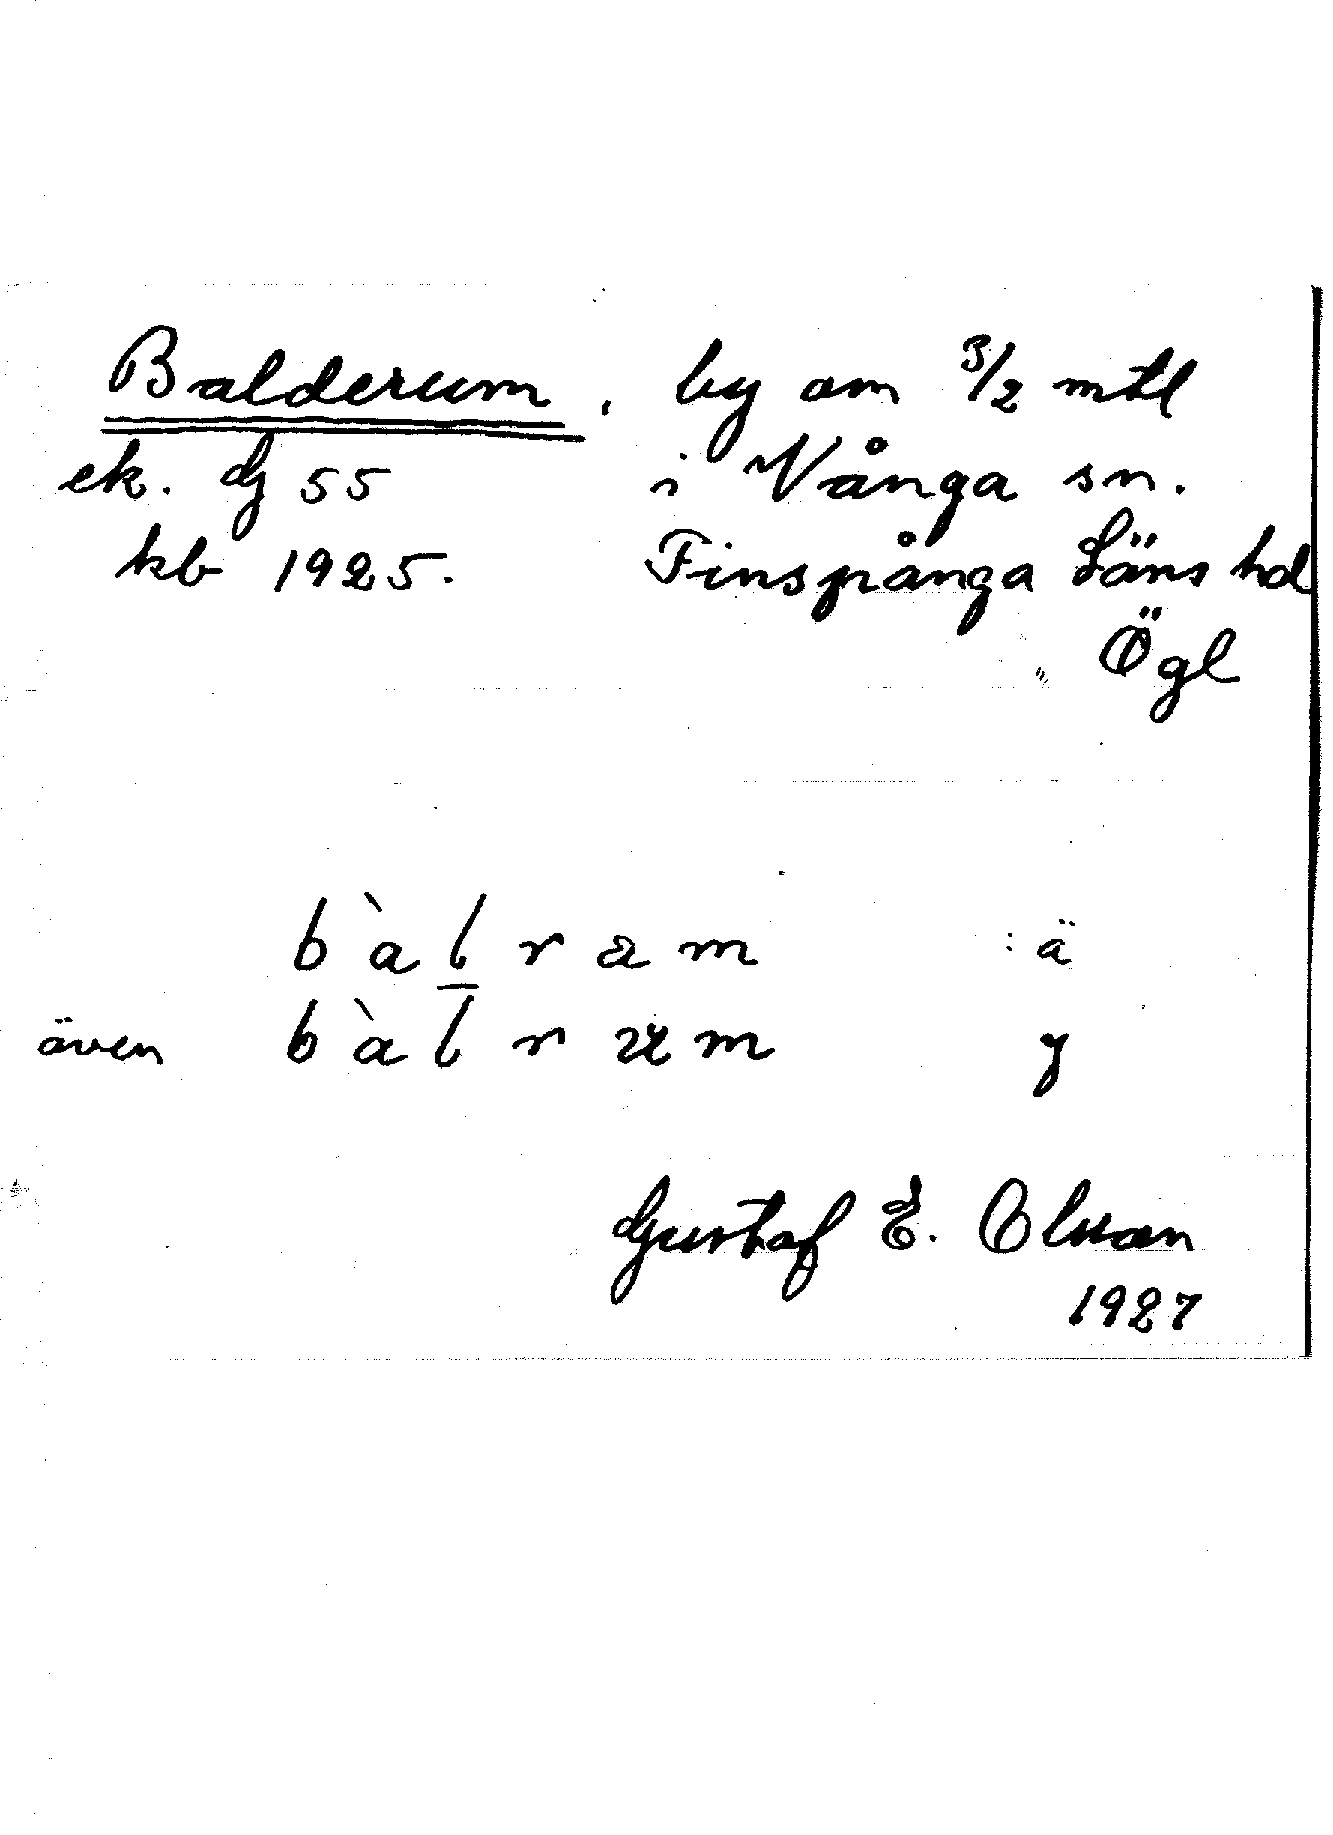 Balderum, by om 3/2 mtl
ek. dj 55 i Vånga sn.
kb 1925. Finspånga Läns hd
Ögl
bàlram : ä
även bàlrum y
Gustaf E. Olsson
1927